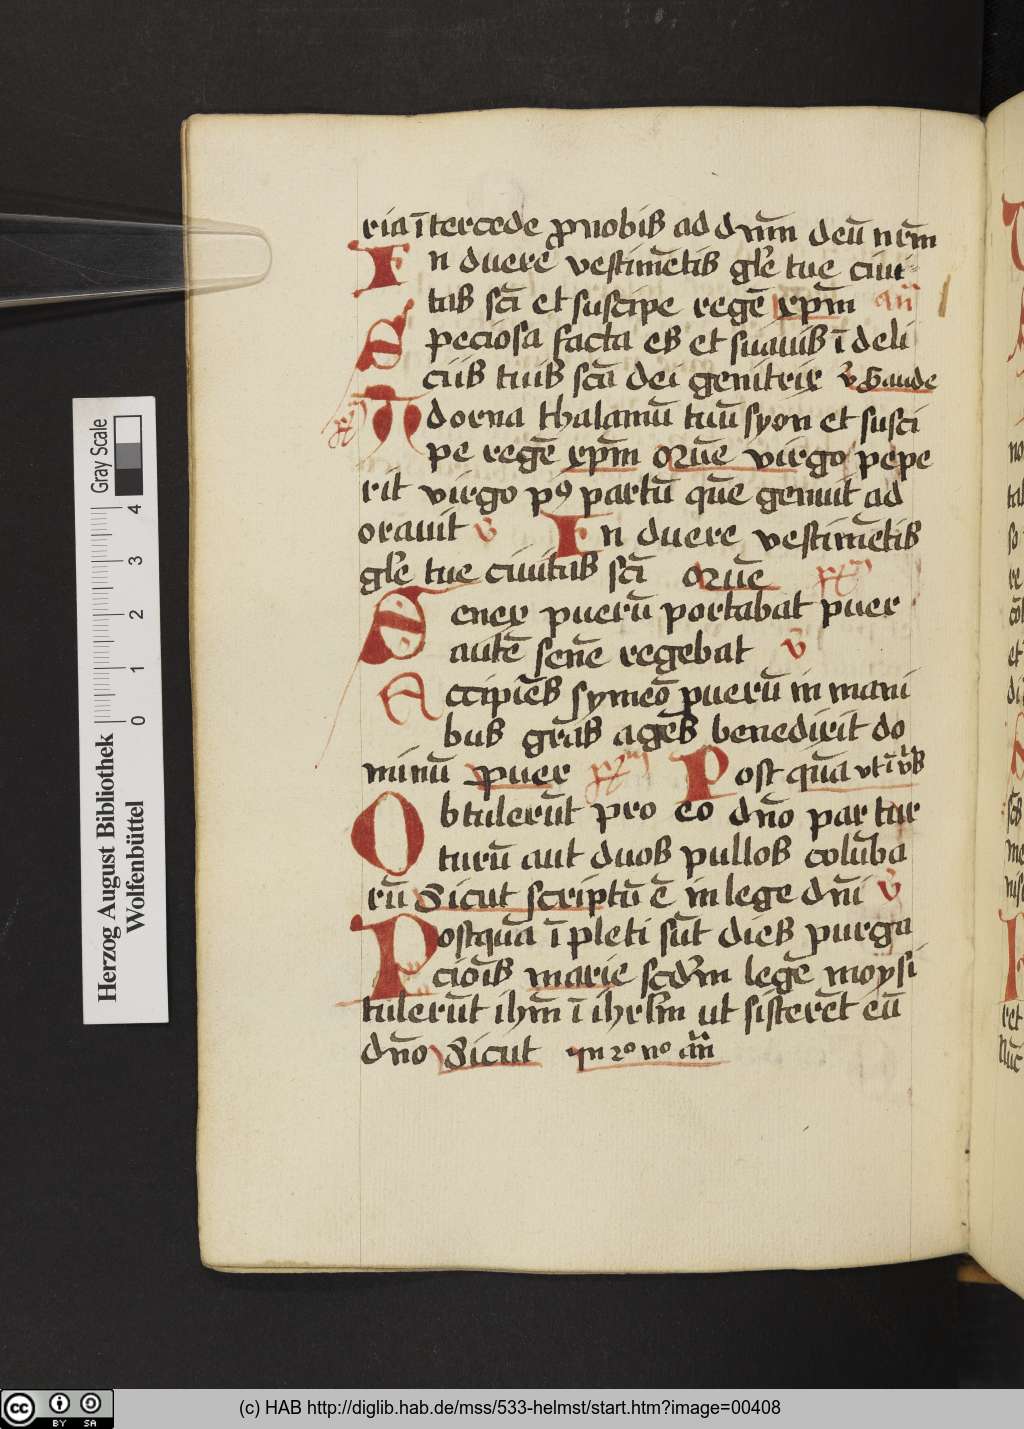 ria ī tercede ꝓ nobis ad dn̄m deū nr̄m
In duere vestimētis gl̄e tue ciui
tas sc̄i et suscipe regē xp̄m an̄
Speciosa facta es et suauis ī deli
ciis tuis sc̄a dei genitrix v̄ Gaude
Adorna thalamū tuū syon et susci
pe regē xp̄m Quē virgo pepe
rit virgo pꝰ partū quē genuit ad
orauit v̄ In duere vestimētis
gl̄e tue ciuitas sc̄i Quē
Senex puerū portabat puer
autē senē regebat v̄
Accipiēs symeō puerū in mani
bus gr̄as agēs benedixit do
minū puer Post quā vt ī v̄s
Obtulerūt pro eo dn̄o par tur
turū aut duos pullos colūba
rū Sicut scriptū ē in lege dn̄i v̄
Postquā īpleti sūt dies purga
cioīs marie scd̄m legē moysi
tulerūt ih̄m ī ihrl̄m ut sisterēt eū
dn̄o Sicut in 2º no an̄
Gray Scale
0 1 2 3 4
Herzog August Bibliothek
Wolfenbüttel
(c) HAB http://diglib.hab.de/mss/533-helmst/start.htm?image=00408
cc BY SA